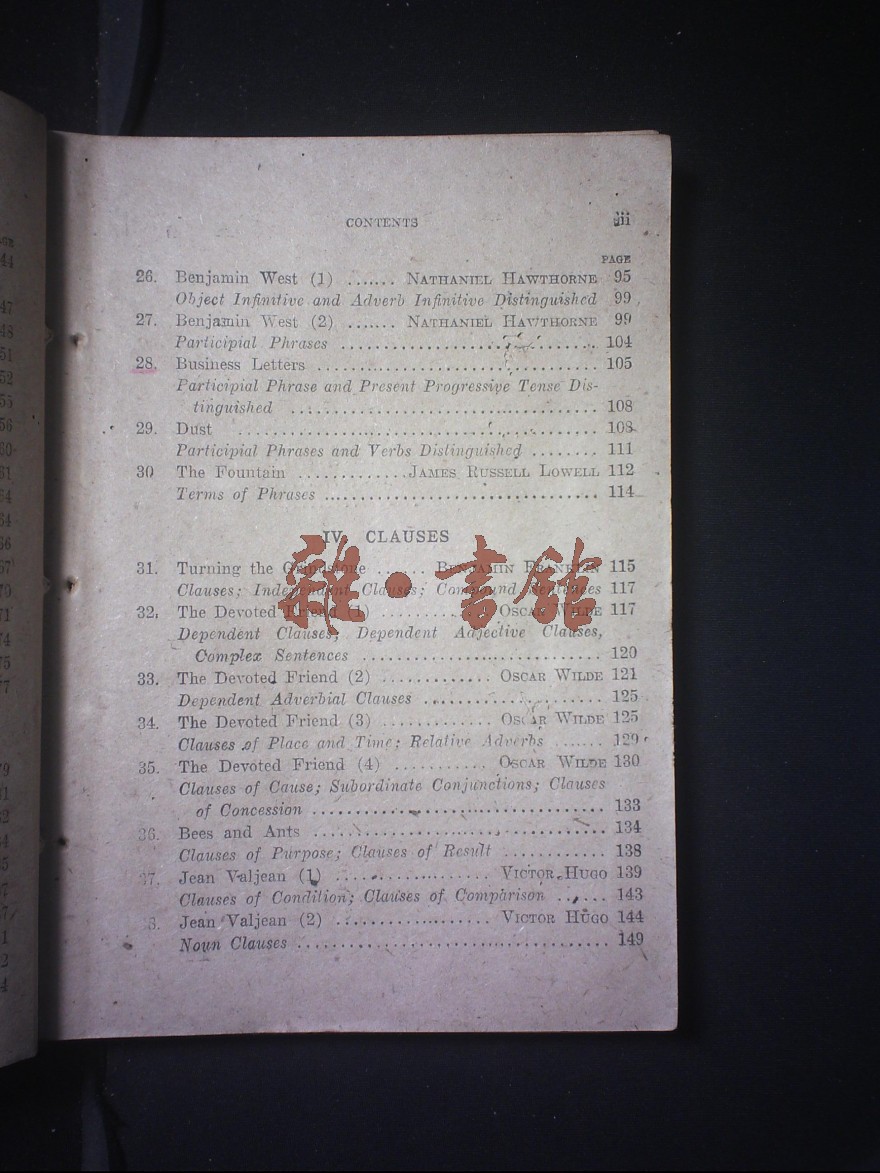 CONTENTS iii
PAGE
26. Benjamin West (1) ....... NATHANIEL HAWTHORNE 95
Object Infinitive and Adverb Infinitive Distinguished 99
27. Benjamin West (2) ....... NATHANIEL HAWTHORNE 99
Participial Phrases ............................ 104
28. Business Letters ............................ 105
Participial Phrase and Present Progressive Tense Dis-
tinguished ............................ 108
29. Dust ............................ 108
Participial Phrases and Verbs Distinguished ........ 111
30 The Fountain ............ JAMES RUSSELL LOWELL 112
Terms of Phrases ............................ 114
IV. CLAUSES
31. Turning the Grindstone ...... BENJAMIN FRANKLIN 115
Clauses; Independent Clauses; Compound Sentences 117
32. The Devoted Friend (1) ............ OSCAR WILDE 117
Dependent Clauses; Dependent Adjective Clauses,
Complex Sentences ............................ 120
33. The Devoted Friend (2) ............ OSCAR WILDE 121
Dependent Adverbial Clauses .................... 125
34. The Devoted Friend (3) ............ OSCAR WILDE 125
Clauses of Place and Time; Relative Adverbs ....... 129
35. The Devoted Friend (4) ........... OSCAR WILDE 130
Clauses of Cause; Subordinate Conjunctions; Clauses
of Concession ................................ 133
36. Bees and Ants ................................ 134
Clauses of Purpose; Clauses of Result ............ 138
37. Jean Valjean (1) .................. VICTOR HUGO 139
Clauses of Condition; Clauses of Comparison ...... 143
8. Jean Valjean (2) .................. VICTOR HUGO 144
Noun Clauses .................................. 149
雜·書館